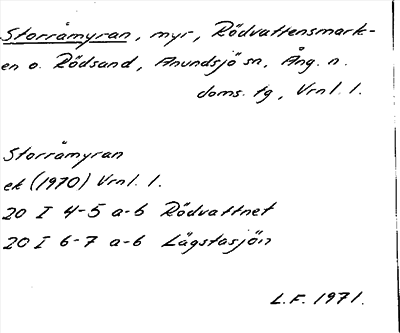 Storråmyran, myr, Rödvattensmark-
en o. Rödsand, Anundsjö sn, Ång. n.
doms. tg, Vrnl. l.
Storråmyran
ek (1970) Vrnl. l.
20 I 4-5 a-b Rödvattnet
20 I 6-7 a-b Lägstasjön
L.F. 1971.